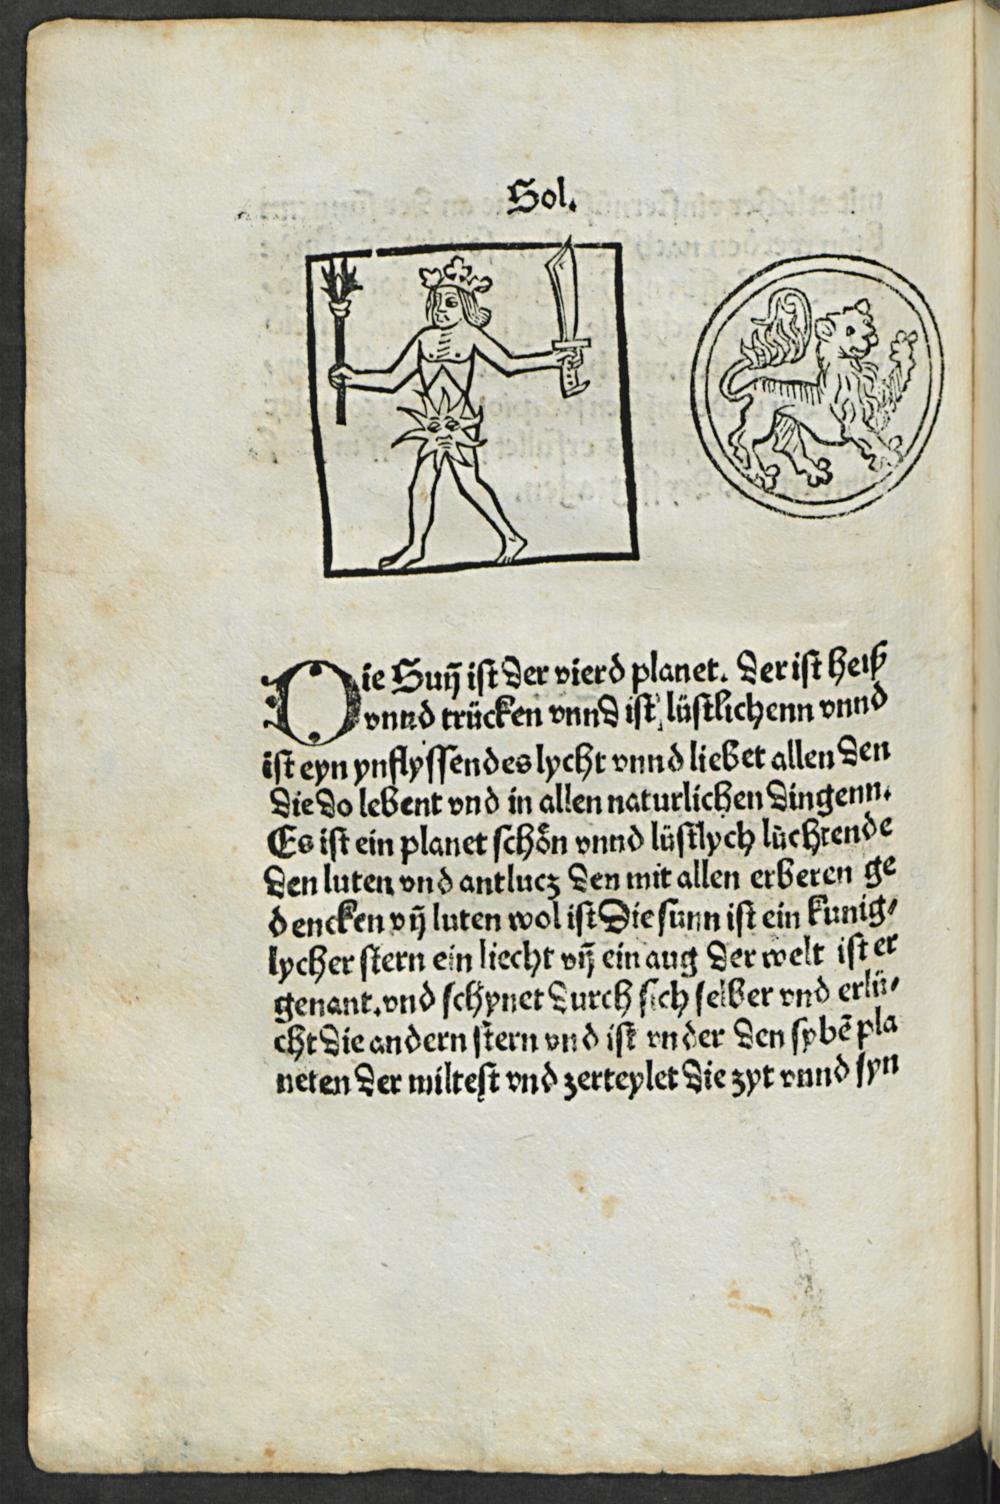 Sol.
Die Suñ ist der vierd planet. der ist heiß
vnnd trücken vnnd ist lüstlichenn vnnd
ist eyn ynflyssendes lycht vnnd liebet allen den
die do lebent vnd in allen naturlichen dingenn.
Es ist ein planet schön vnnd lüstlych lüchtende
den luten vnd antlucz den mit allen erberen ge
dencken vñ luten wol ist Die sunn ist ein kunig⸗
lycher stern ein liecht vñ ein aug der welt ist er
genant. vnd schynet durch sich selber vnd erlü⸗
cht die andern stern vnd ist vnder den sybē pla
neten der miltest vnd zerteylet die zyt vnnd syn